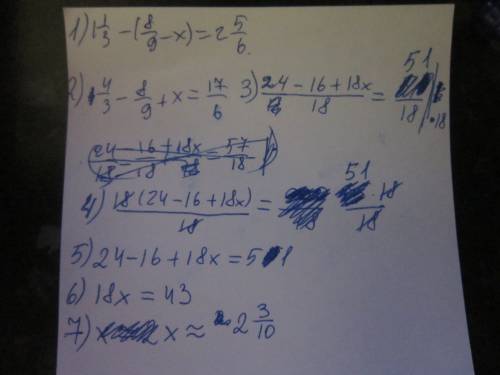 1) 1 1/3 - (8/9 - x) = 2 5/6
2) 4/3 - 8/9 + x = 17/6 3) (24 - 16 + 18x)/18 = 51/18 | · 18
24 - 16 + 18x = 57/18
4) 18(24 - 16 + 18x)/18 = 51 · 18/18
5) 24 - 16 + 18x = 51
6) 18x = 43
7) x ≈ 2 3/10